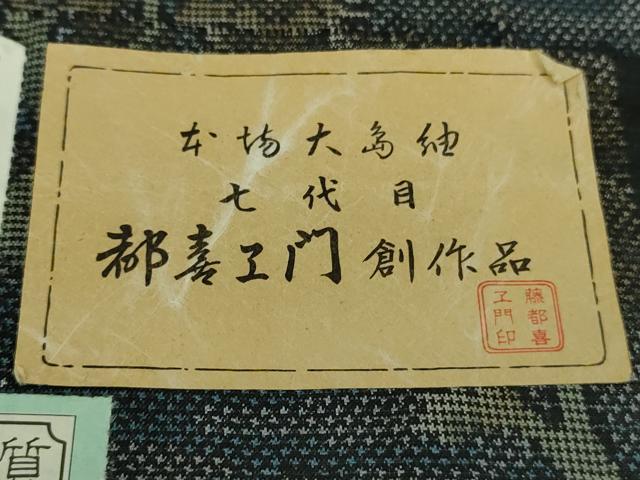 本場大島紬
七代目
都喜ヱ門創作品
藤都喜
ヱ門印
質